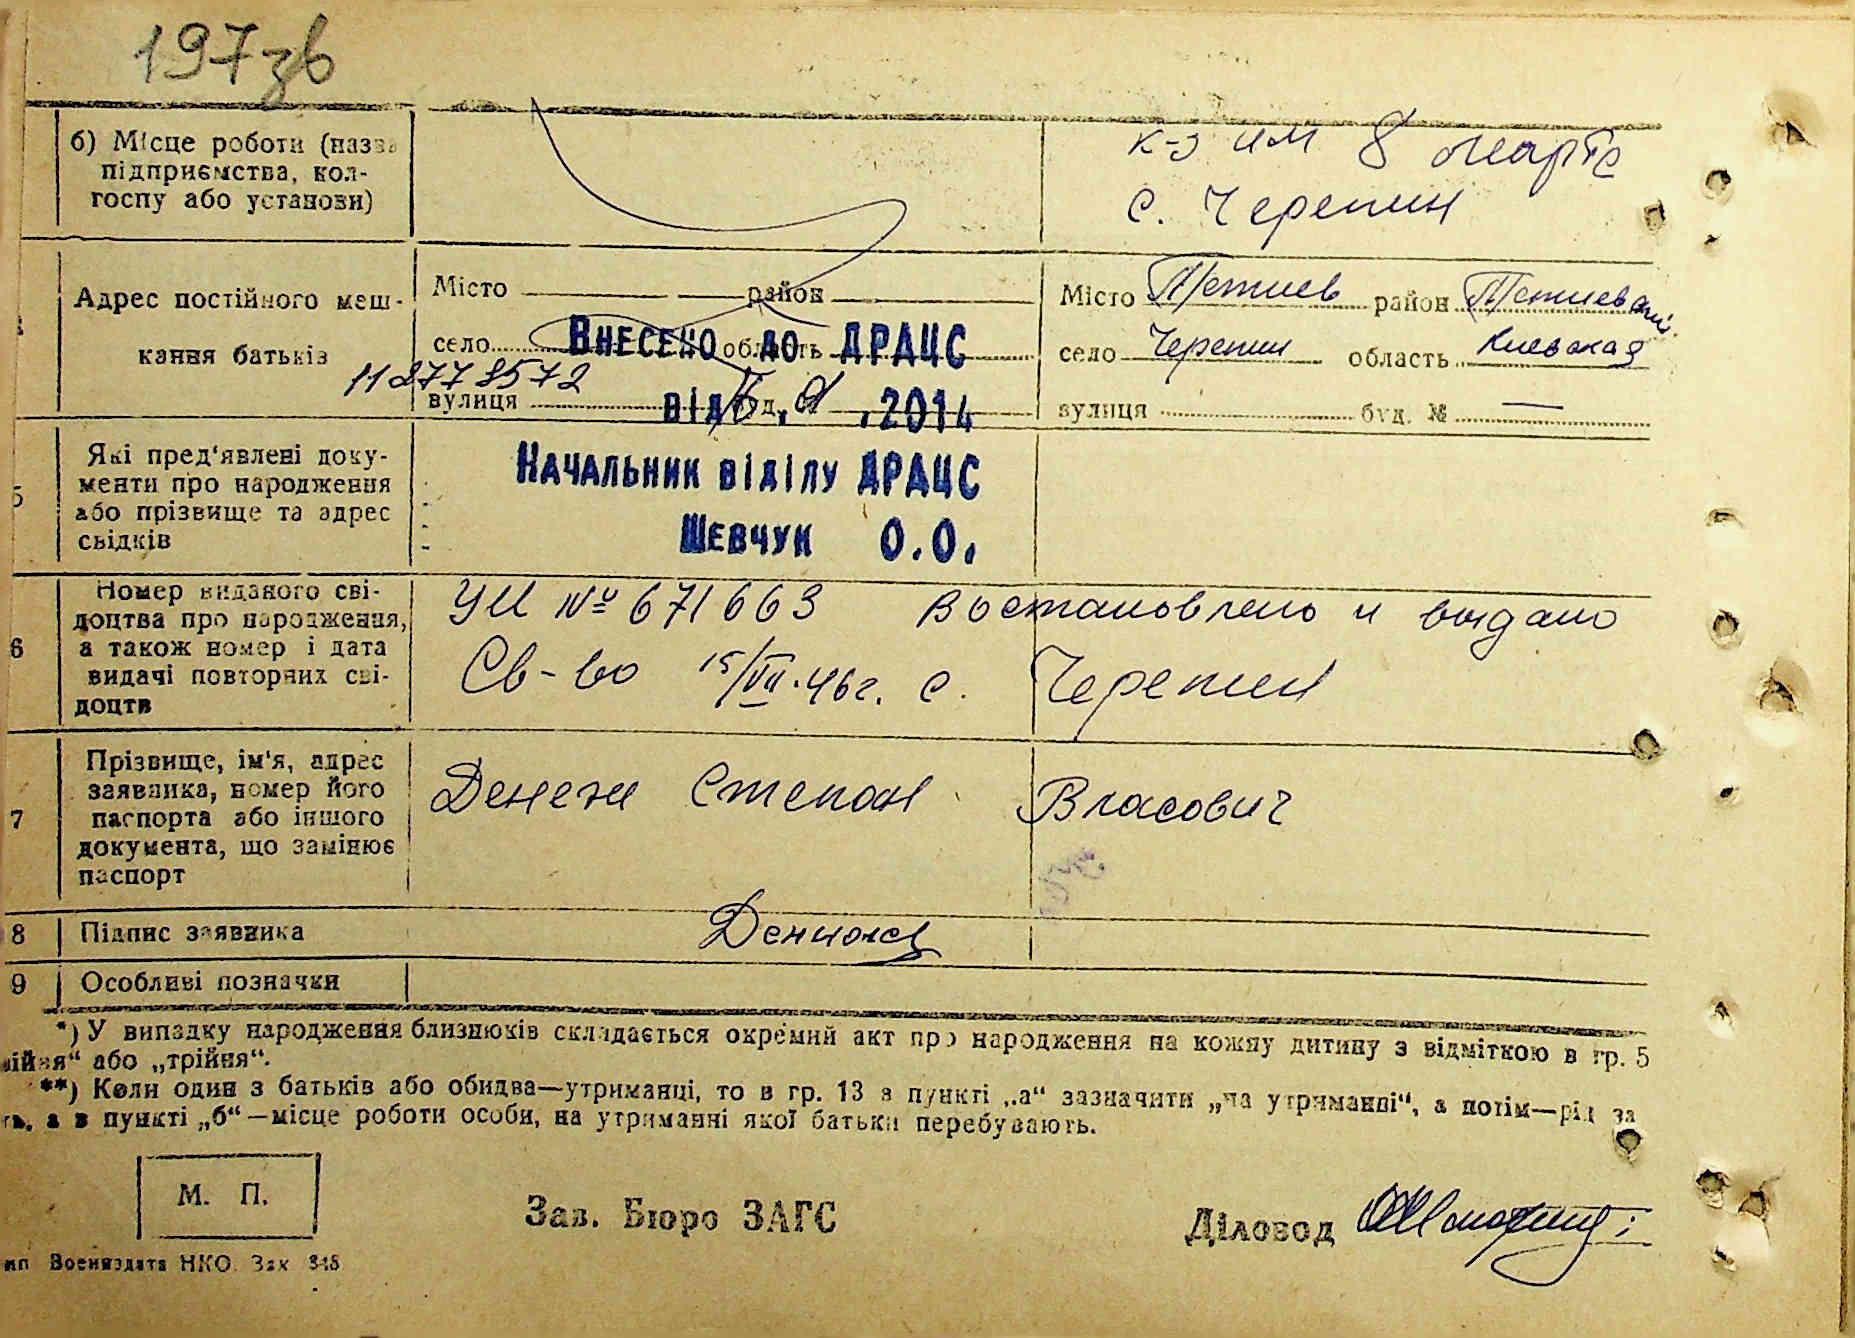 197зв
б) Місце роботи (назва
підприємства, кол-
госпу або установи)
к-з им 8 марта
с. Черепин
Адрес постійного меш-
кання батьків
Місто район
село область
вулиця буд.
112778572
Місто Тетиев район Тетиевский
село Черепин область Киевская
вулиця буд. № —
Внесено до ДРАЦС
від .2014
Начальник відділу ДРАЦС
Шевчук О.О.
5
Які пред'явлені доку-
менти про народження
або прізвище та адрес
свідків
6
Номер виданого сві-
доцтва про народження,
а також номер і дата
видачі повторних сві-
доцтв
УИ № 671663 Востановлено и выдано
Св-во 15/VII-46г. с. Черепин
7
Прізвище, ім'я, адрес
заявника, номер його
паспорта або іншого
документа, що замінює
паспорт
Степан Власович
8
Підпис заявника
9
Особливі позначки
*) У випадку народження близнюків складається окремий акт про народження на кожну дитину з відміткою в гр. 5
війня“ або „трійня“.
**) Коли один з батьків або обидва—утриманці, то в гр. 13 в пункті „а“ зазначити „на утриманні“, а потім—рід за
ть, а в пункті „б“—місце роботи особи, на утриманні якої батьки перебувають.
М. П.
Зав. Бюро ЗАГС
Діловод
ип Воениздата НКО. Зак 348